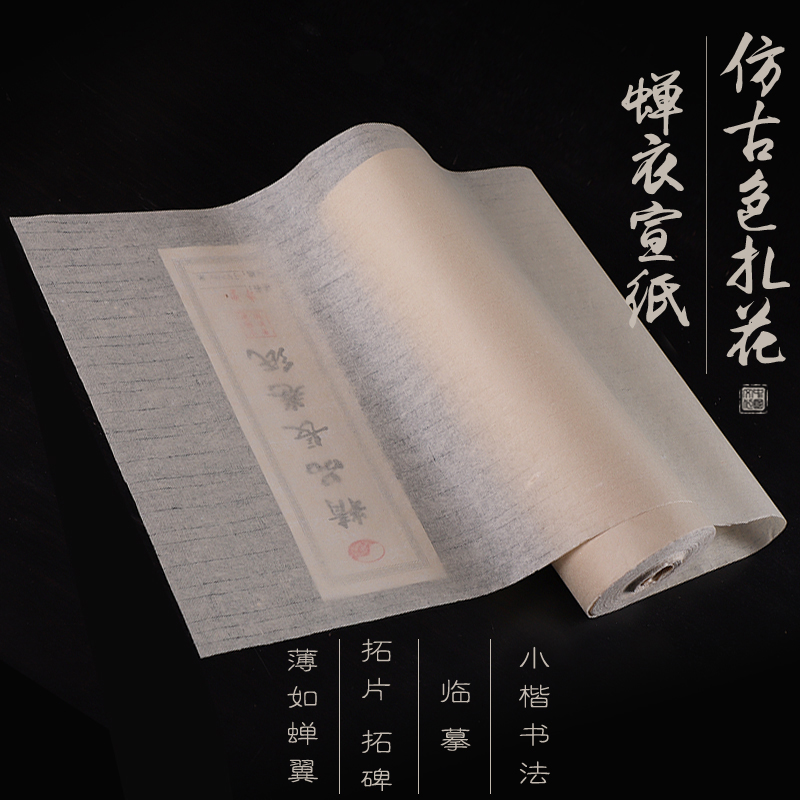 仿古色扎花
蝉衣宣纸
精品长卷纸
小楷书法
临摹
拓片 拓碑
薄如蝉翼